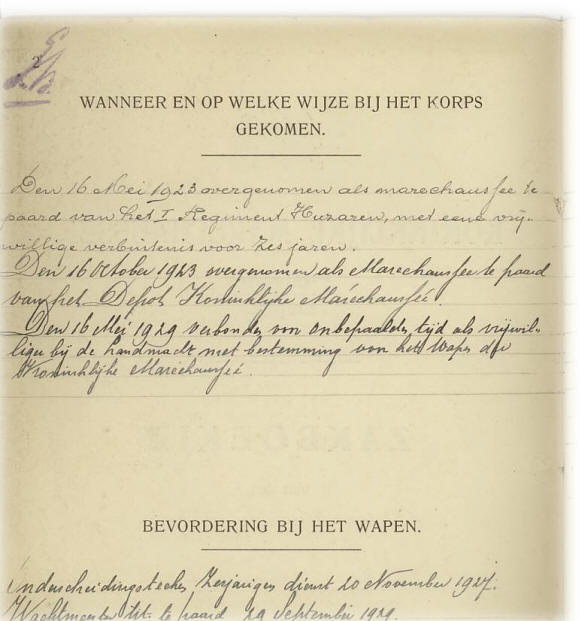 2
WANNEER EN OP WELKE WIJZE BIJ HET KORPS
GEKOMEN.
Den 16 Mei 1923 overgenomen als marechaussee te
paard van het I Regiment Huzaren, met eene vrij-
willige verbintenis voor zes jaren.
Den 16 October 1923 overgenomen als Marechaussee te paard
van het Depot Koninklijke Maréchaussée.
Den 16 Mei 1929 verbonden voor onbepaalden tijd als vrijwil-
liger bij de landmacht met bestemming voor het Wapen der
Koninklijke Maréchaussée.
ZAKBOEKJE
BEVORDERING BIJ HET WAPEN.
Onderscheidingsteeken Zesjarigen dienst 20 November 1927.
Wachtmeester tit. te paard 29 September 1929.